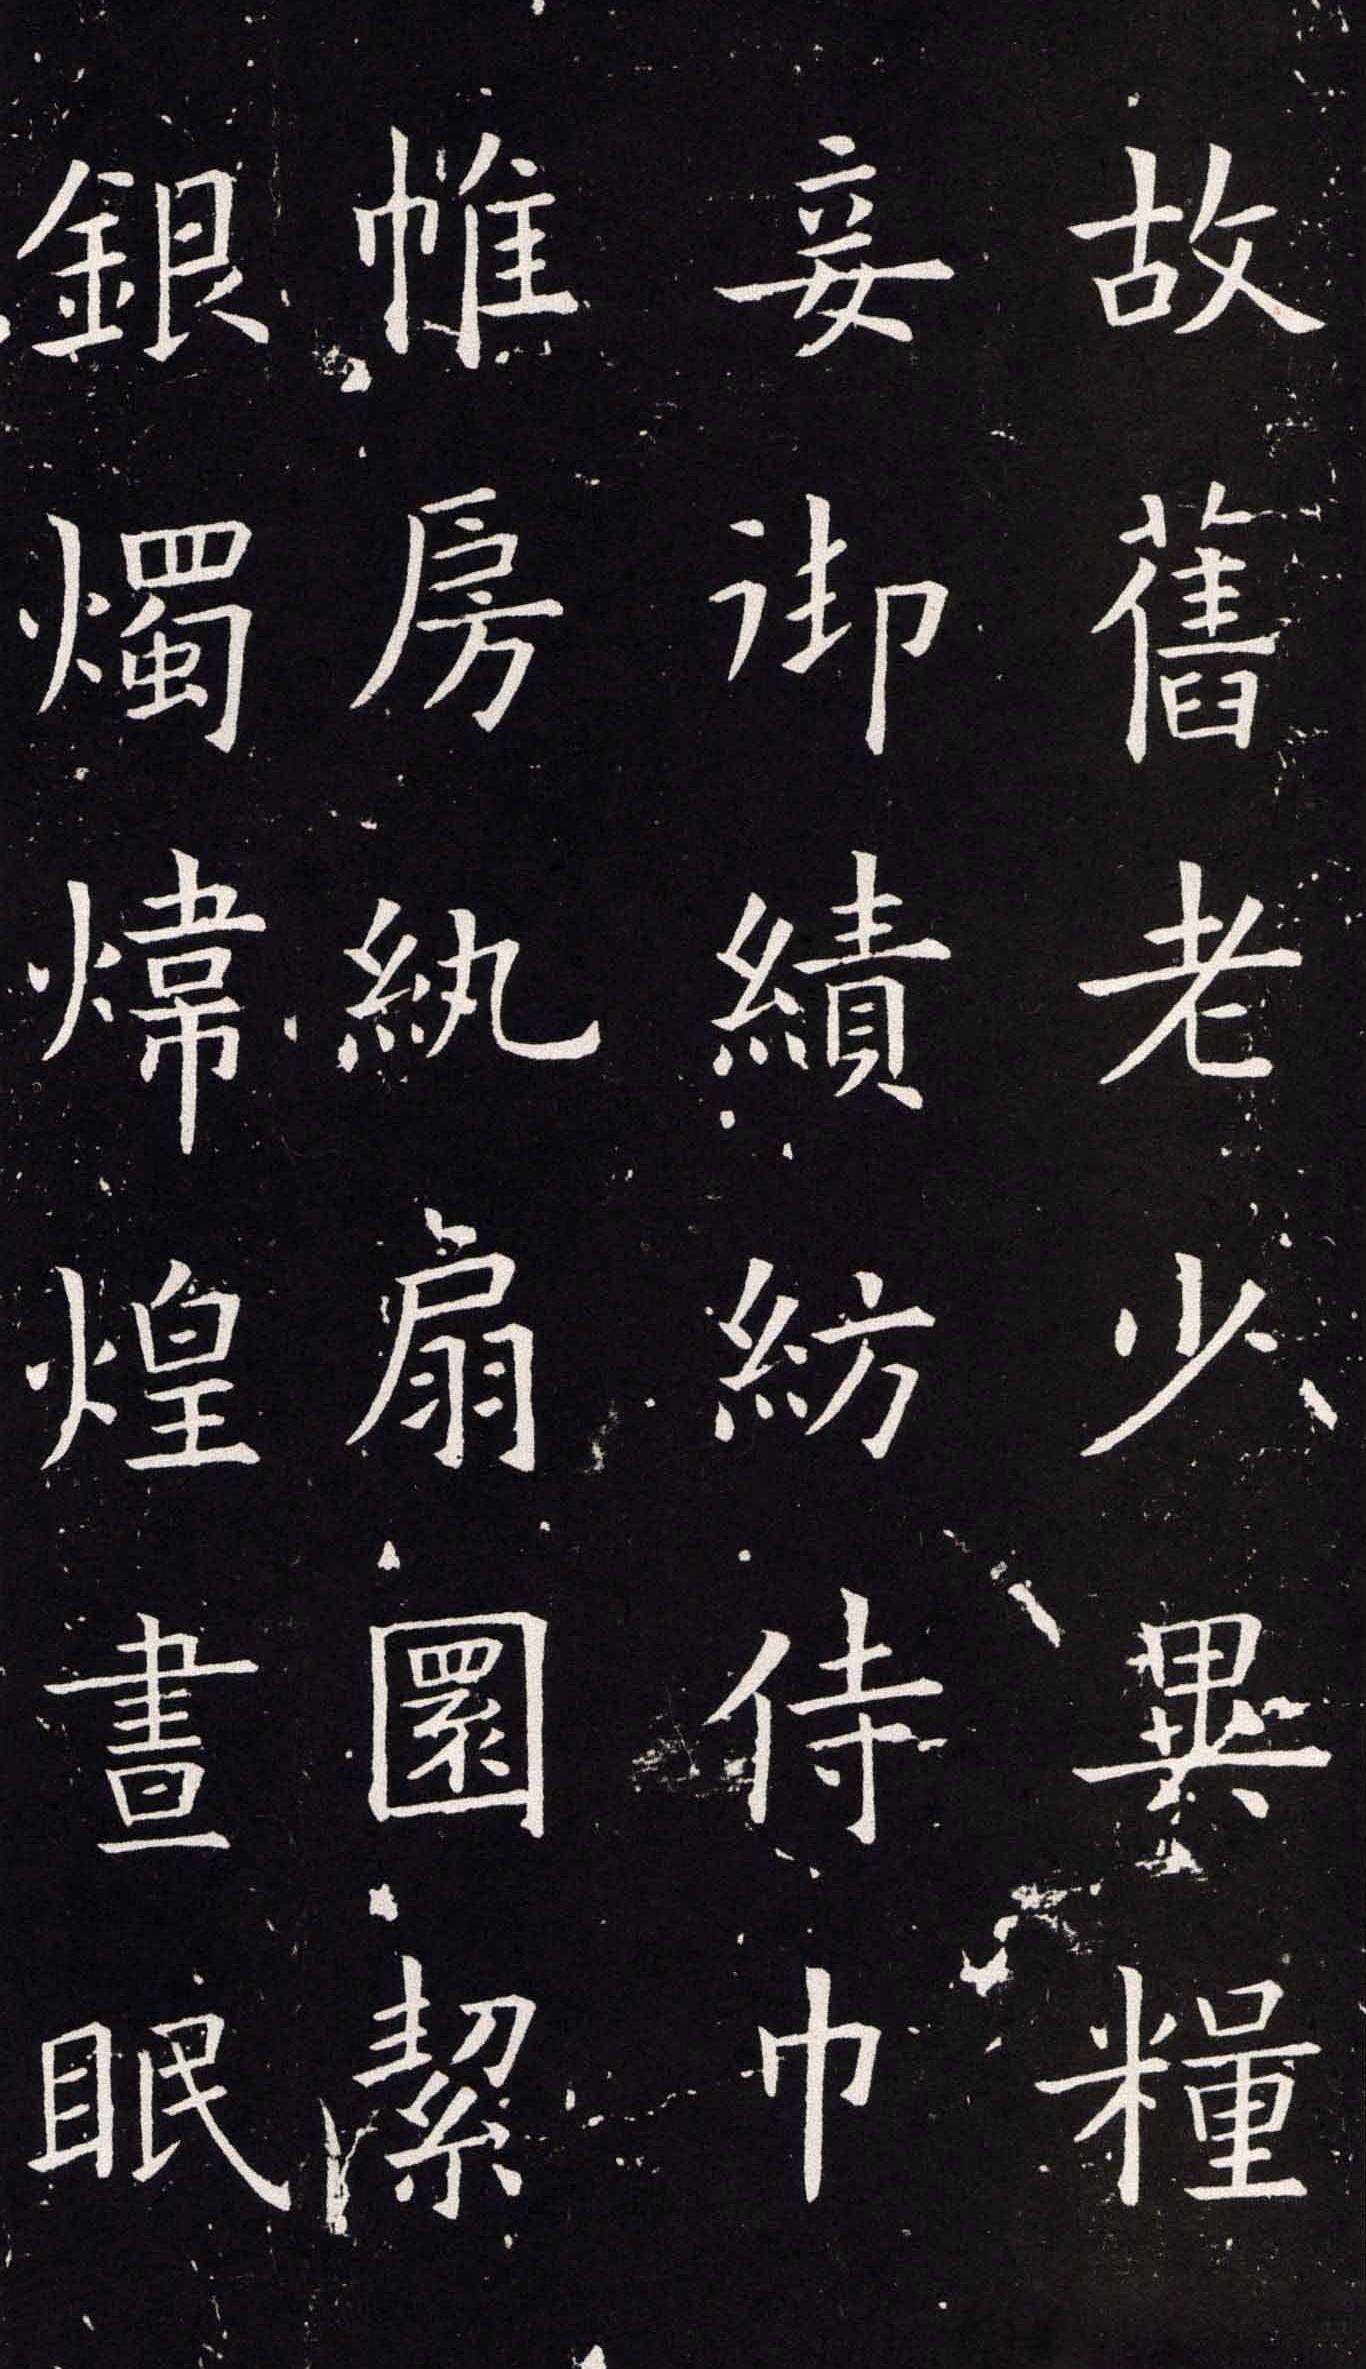 故舊老少異糧
妾御績紡侍巾
帷房紈扇圎潔
銀燭煒煌晝眠